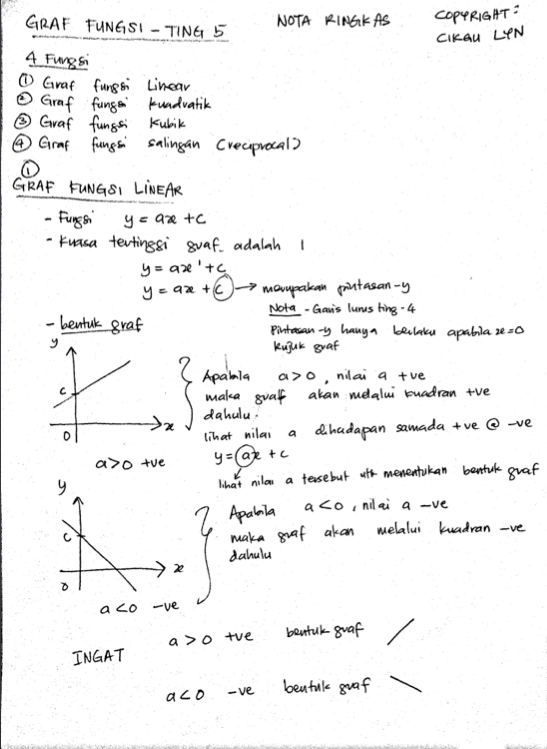 GRAF FUNGSI - TING 5 NOTA RINGKAS COPYRIGHT:
CIKGU LYN
4 Fungsi
① Graf fungsi Linear
② Graf fungsi kuadratik
③ Graf fungsi kubik
④ Graf fungsi salingan (reciprocal)
①
GRAF FUNGSI LINEAR
- Fungsi y = ax + c
- Kuasa tertinggi graf adalah 1
y = ax¹ + c
y = ax + c → merupakan pintasan-y
Nota - Garis lurus ting-4
Pintasan-y hanya berlaku apabila x=0
Rujuk graf
- bentuk graf
y
c
0
x
a>0 +ve
Apabila a>0, nilai a +ve
maka graf akan melalui kuadran +ve
dahulu.
lihat nilai a dihadapan samada +ve @ -ve
y = ax + c
lihat nilai a tersebut utk menentukan bentuk graf
y
c
0
x
a<0 -ve
Apabila a<0, nilai a -ve
maka graf akan melalui kuadran -ve
dahulu
INGAT
a > 0 +ve bentuk graf /
a < 0 -ve bentuk graf \